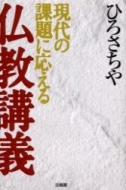 ひろさちや
現代の
課題に応える
仏教講義